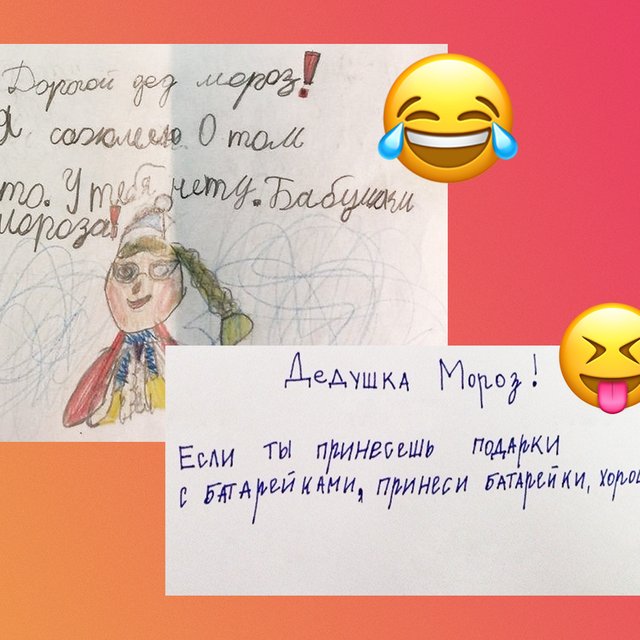 Дорогой дед мороз!
Я сожелею О том
что. У тебя нету. Бабушки
мороза!
Дедушка Мороз!
Если ты принесешь подарки
с батарейками, принеси батарейки, хорош